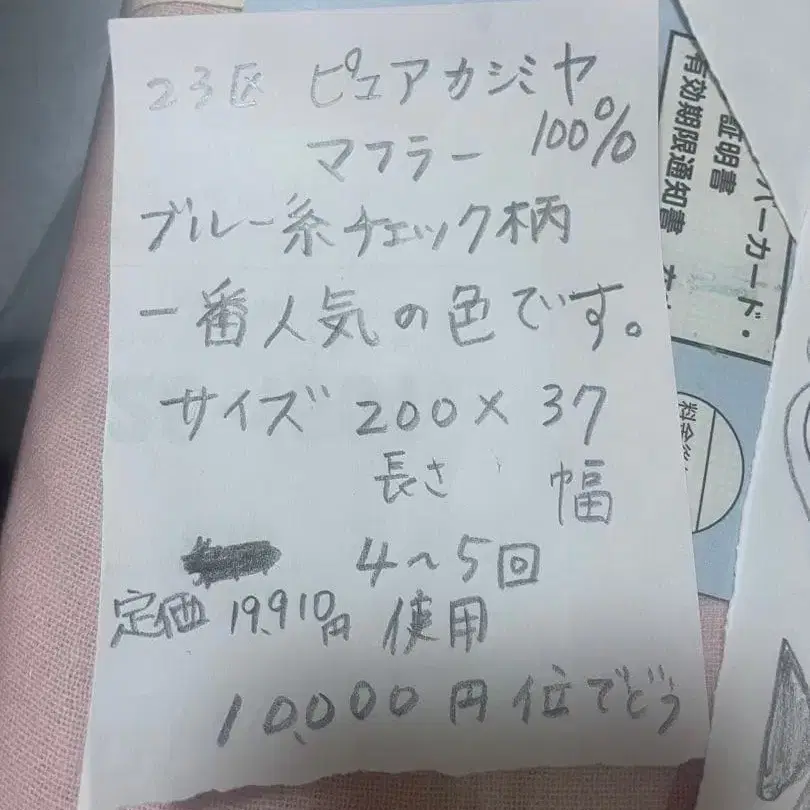 23区 ピュアカシミヤ
マフラー 100%
ブルー糸チェック柄
一番人気の色です。
サイズ 200×37
長さ 幅
4〜5回
定価 19,910円 使用
10,000円位でどう
証明書
有効期限通知書
カード・